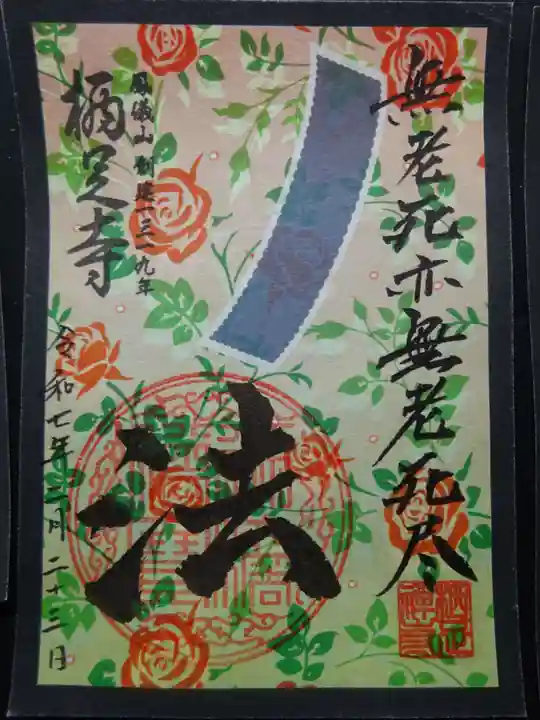 無老死亦無老死尽
法
鳳儀山創建一三一九年
栖足寺
令和七年三月二十三日